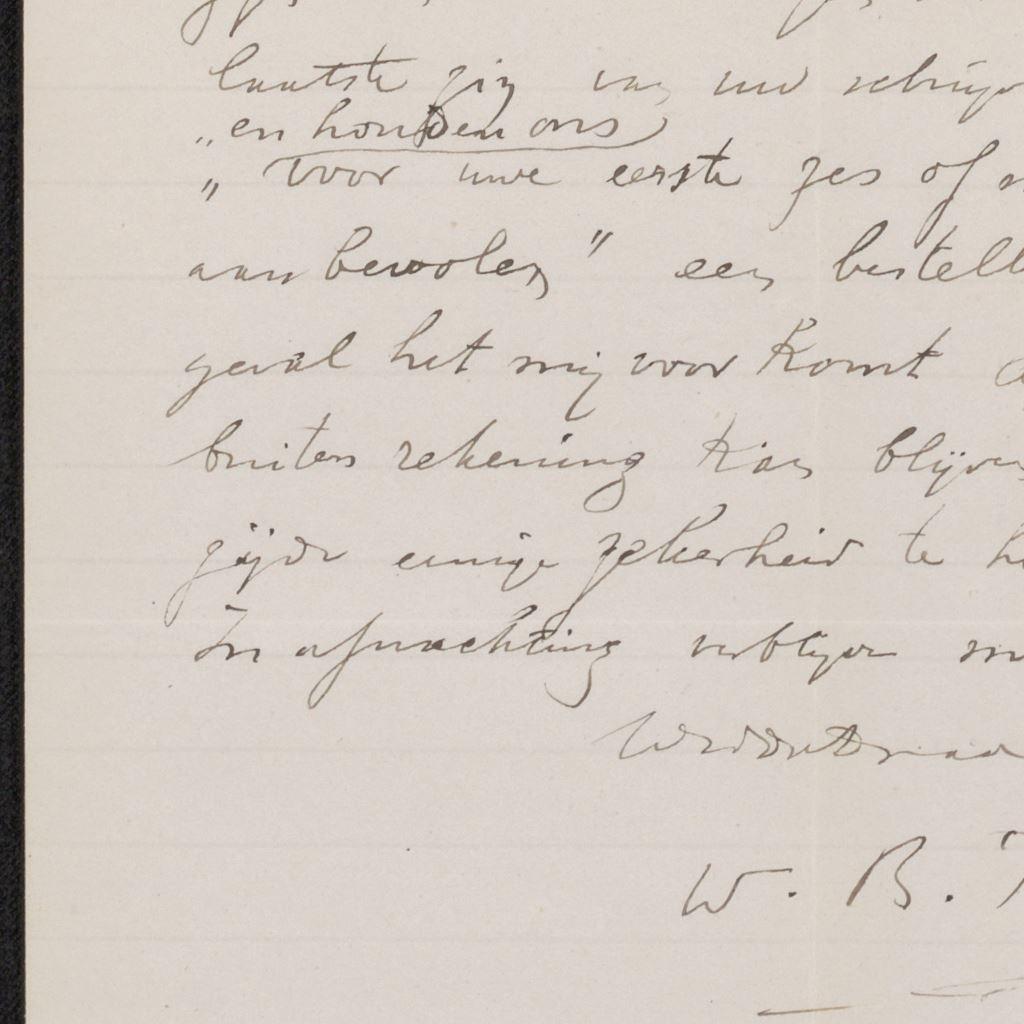 laatste zin van uw schrijv
„en houden ons
„ voor uwe eerste zes of
aanbevolen" een bestell
geval het mij voorkomt
buiten rekening kan blijven
zijde eenige zekerheid te h
In afwachting verblijve m
W. B.